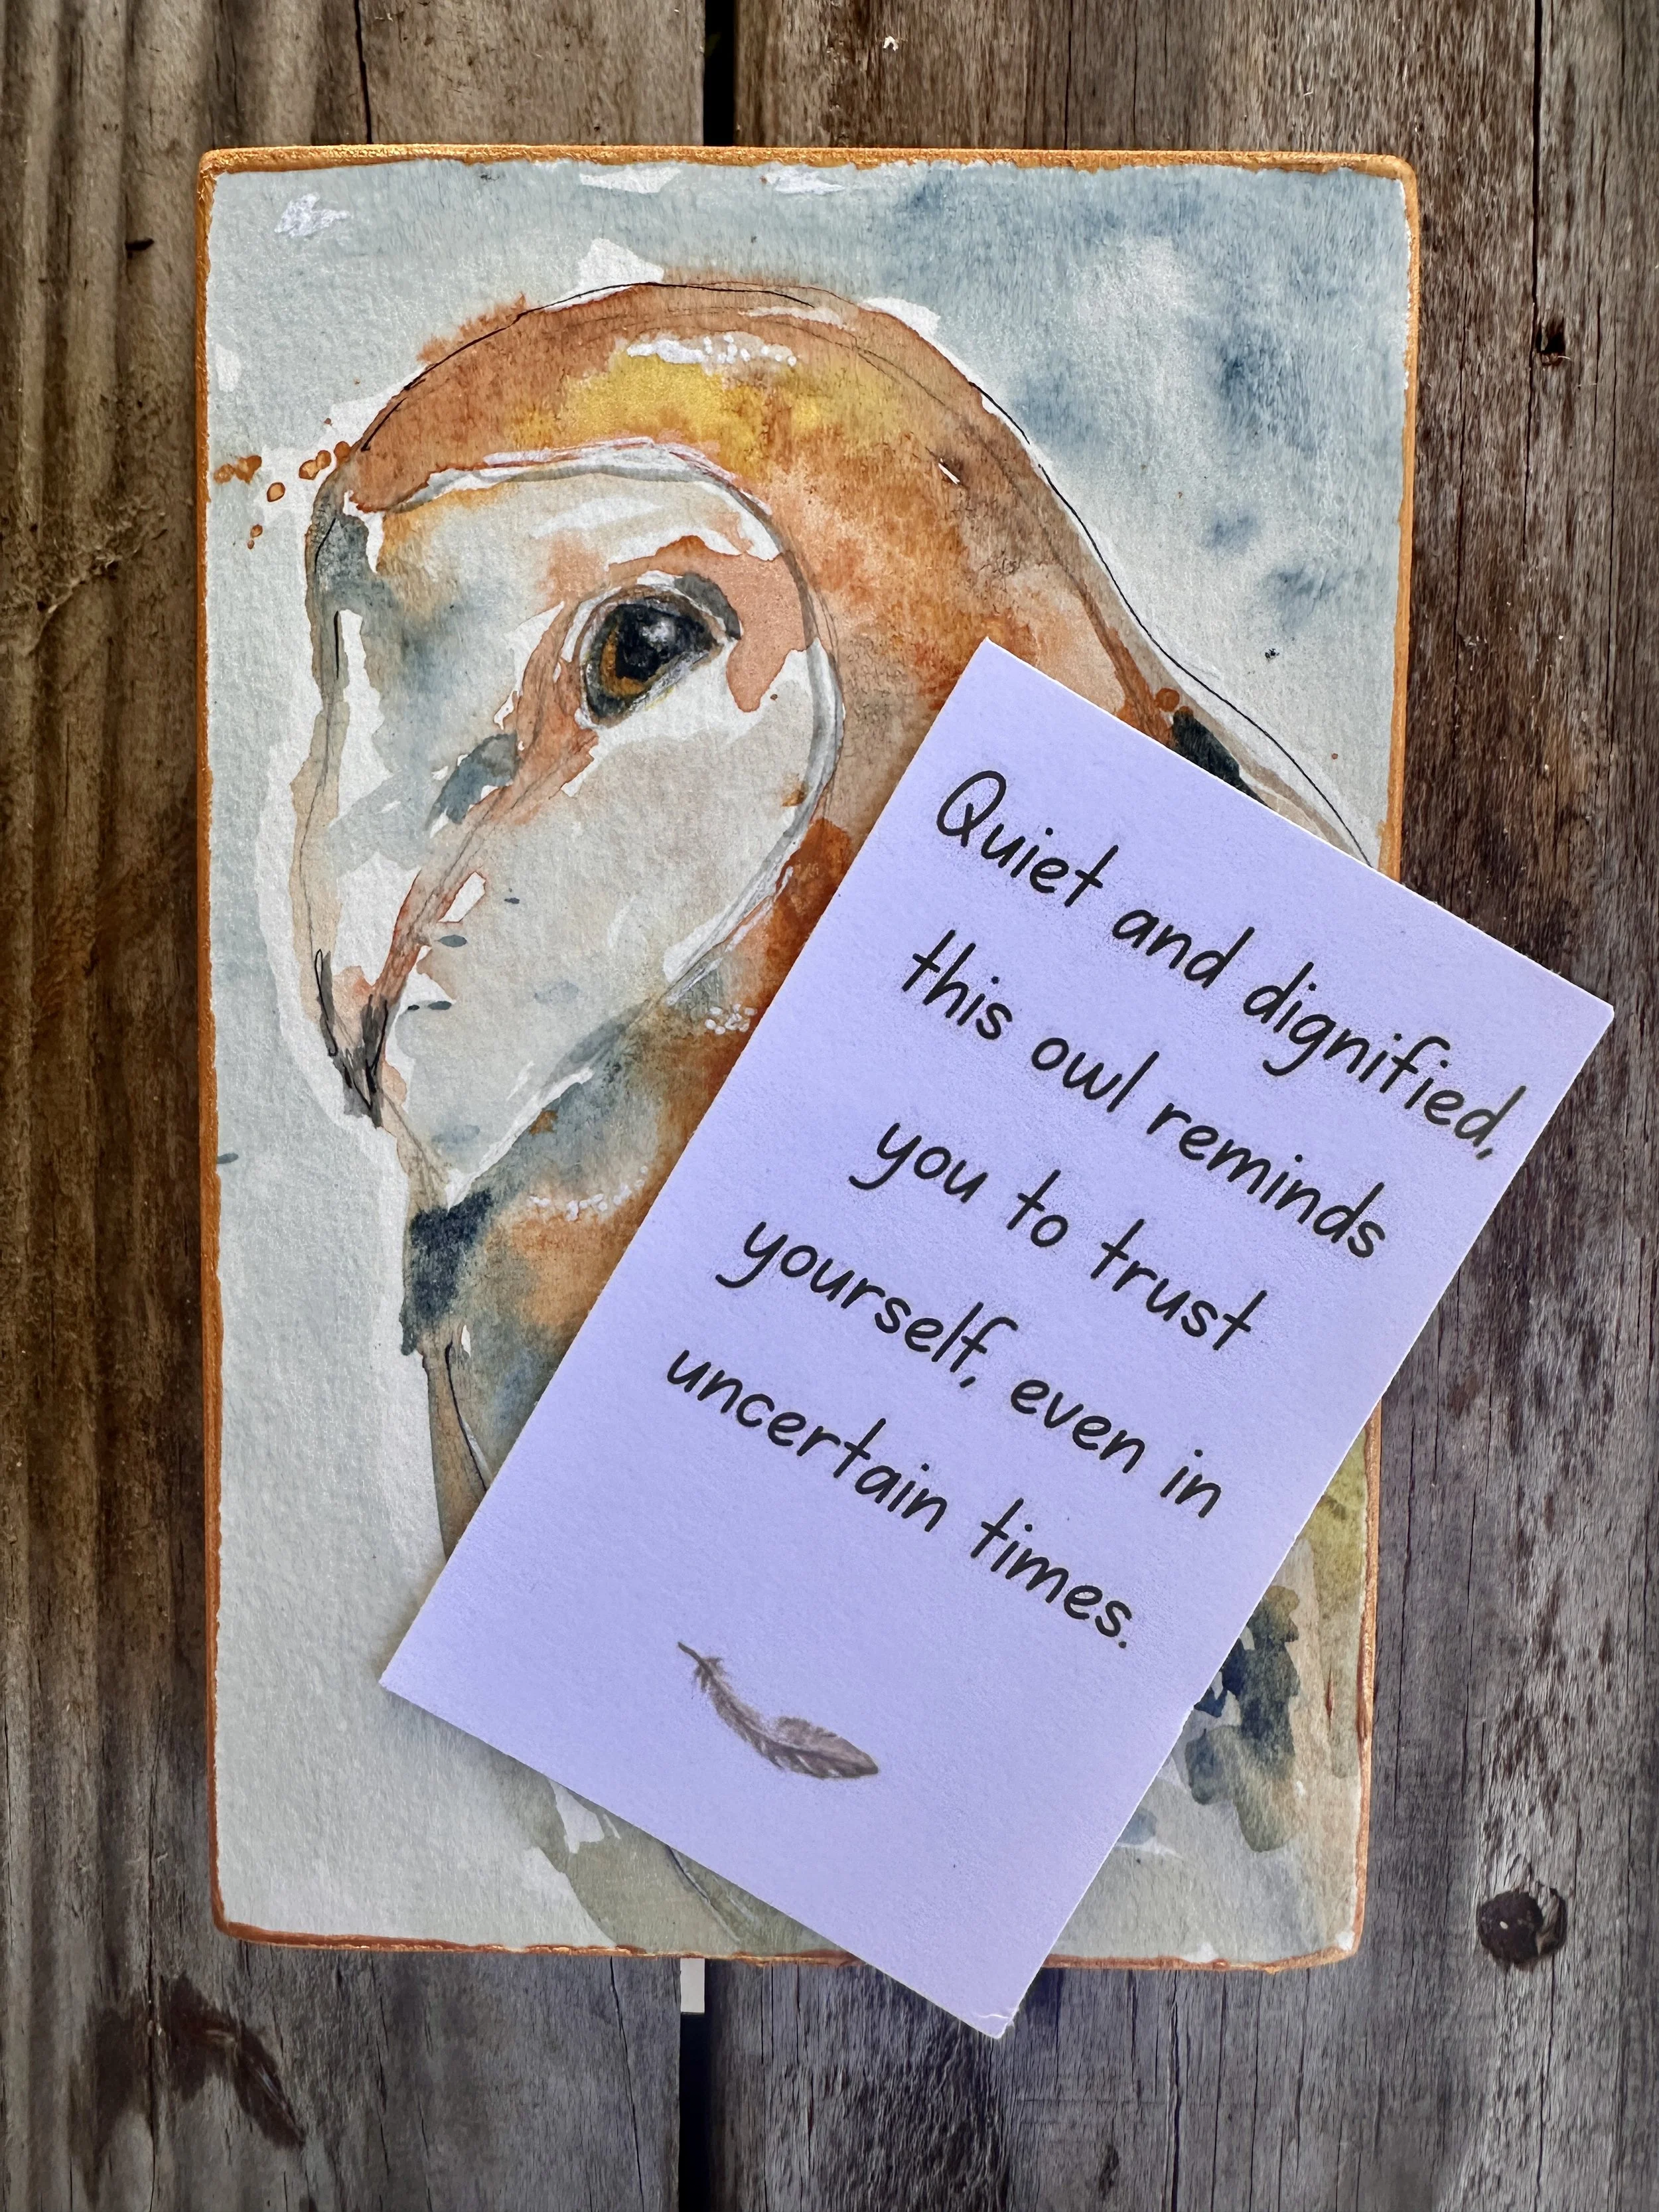 Quiet and dignified,
this owl reminds
you to trust
yourself, even in
uncertain times.